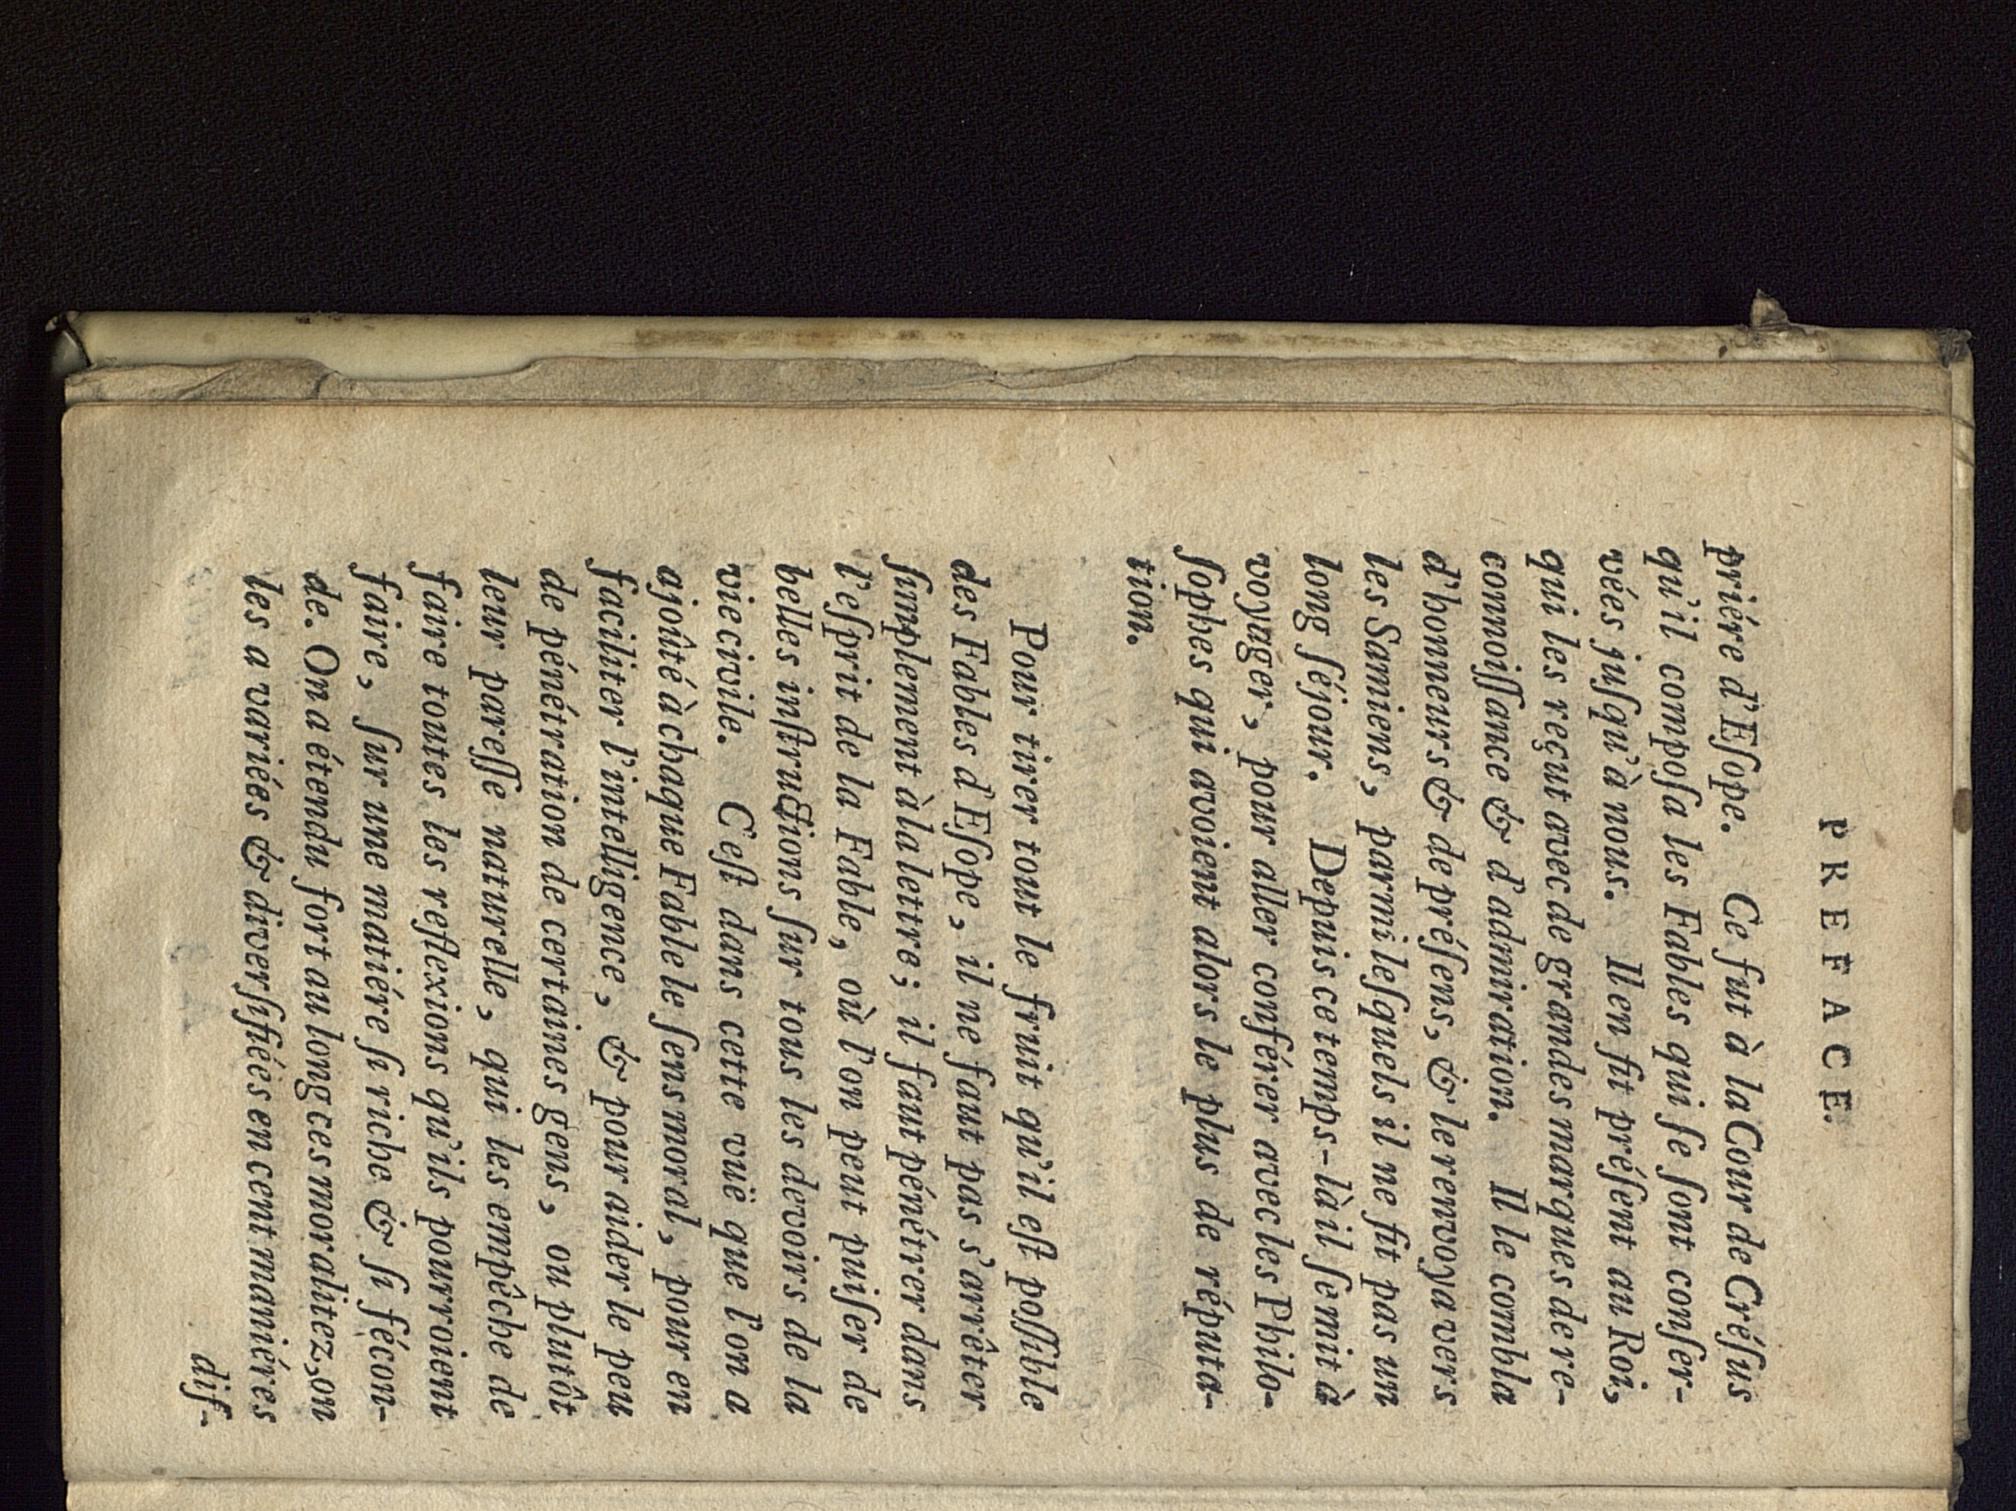 PREFACE.
priére d'Eſope. Ce fut à la Cour de Créſus
qu'il compoſa les Fables qui ſe ſont conſer-
vées juſqu'à nous. Il en fit préſent au Roi,
qui les reçut avec de grandes marques de re-
connoiſſance & d'admiration. Il le combla
d'honneurs & de préſens, & le renvoya vers
les Samiens, parmi leſquels il ne fit pas un
long ſéjour. Depuis ce temps-là il ſe mit à
voyager, pour aller conférer avec les Philo-
ſophes qui avoient alors le plus de réputa-
tion.
Pour tirer tout le fruit qu'il eſt poſſible
des Fables d'Eſope, il ne faut pas s'arrêter
ſimplement à la lettre; il faut pénétrer dans
l'eſprit de la Fable, où l'on peut puiſer de
belles inſtructions ſur tous les devoirs de la
vie civile. C'eſt dans cette vuë que l'on a
ajoûté à chaque Fable le ſens moral, pour en
faciliter l'intelligence, & pour aider le peu
de pénétration de certaines gens, ou plutôt
leur pareſſe naturelle, qui les empêche de
faire toutes les reflexions qu'ils pourroient
faire, ſur une matiére ſi riche & ſi fécon-
de. On a étendu fort au long ces moralitez, on
les a variées & diverſifiées en cent maniéres
dif-